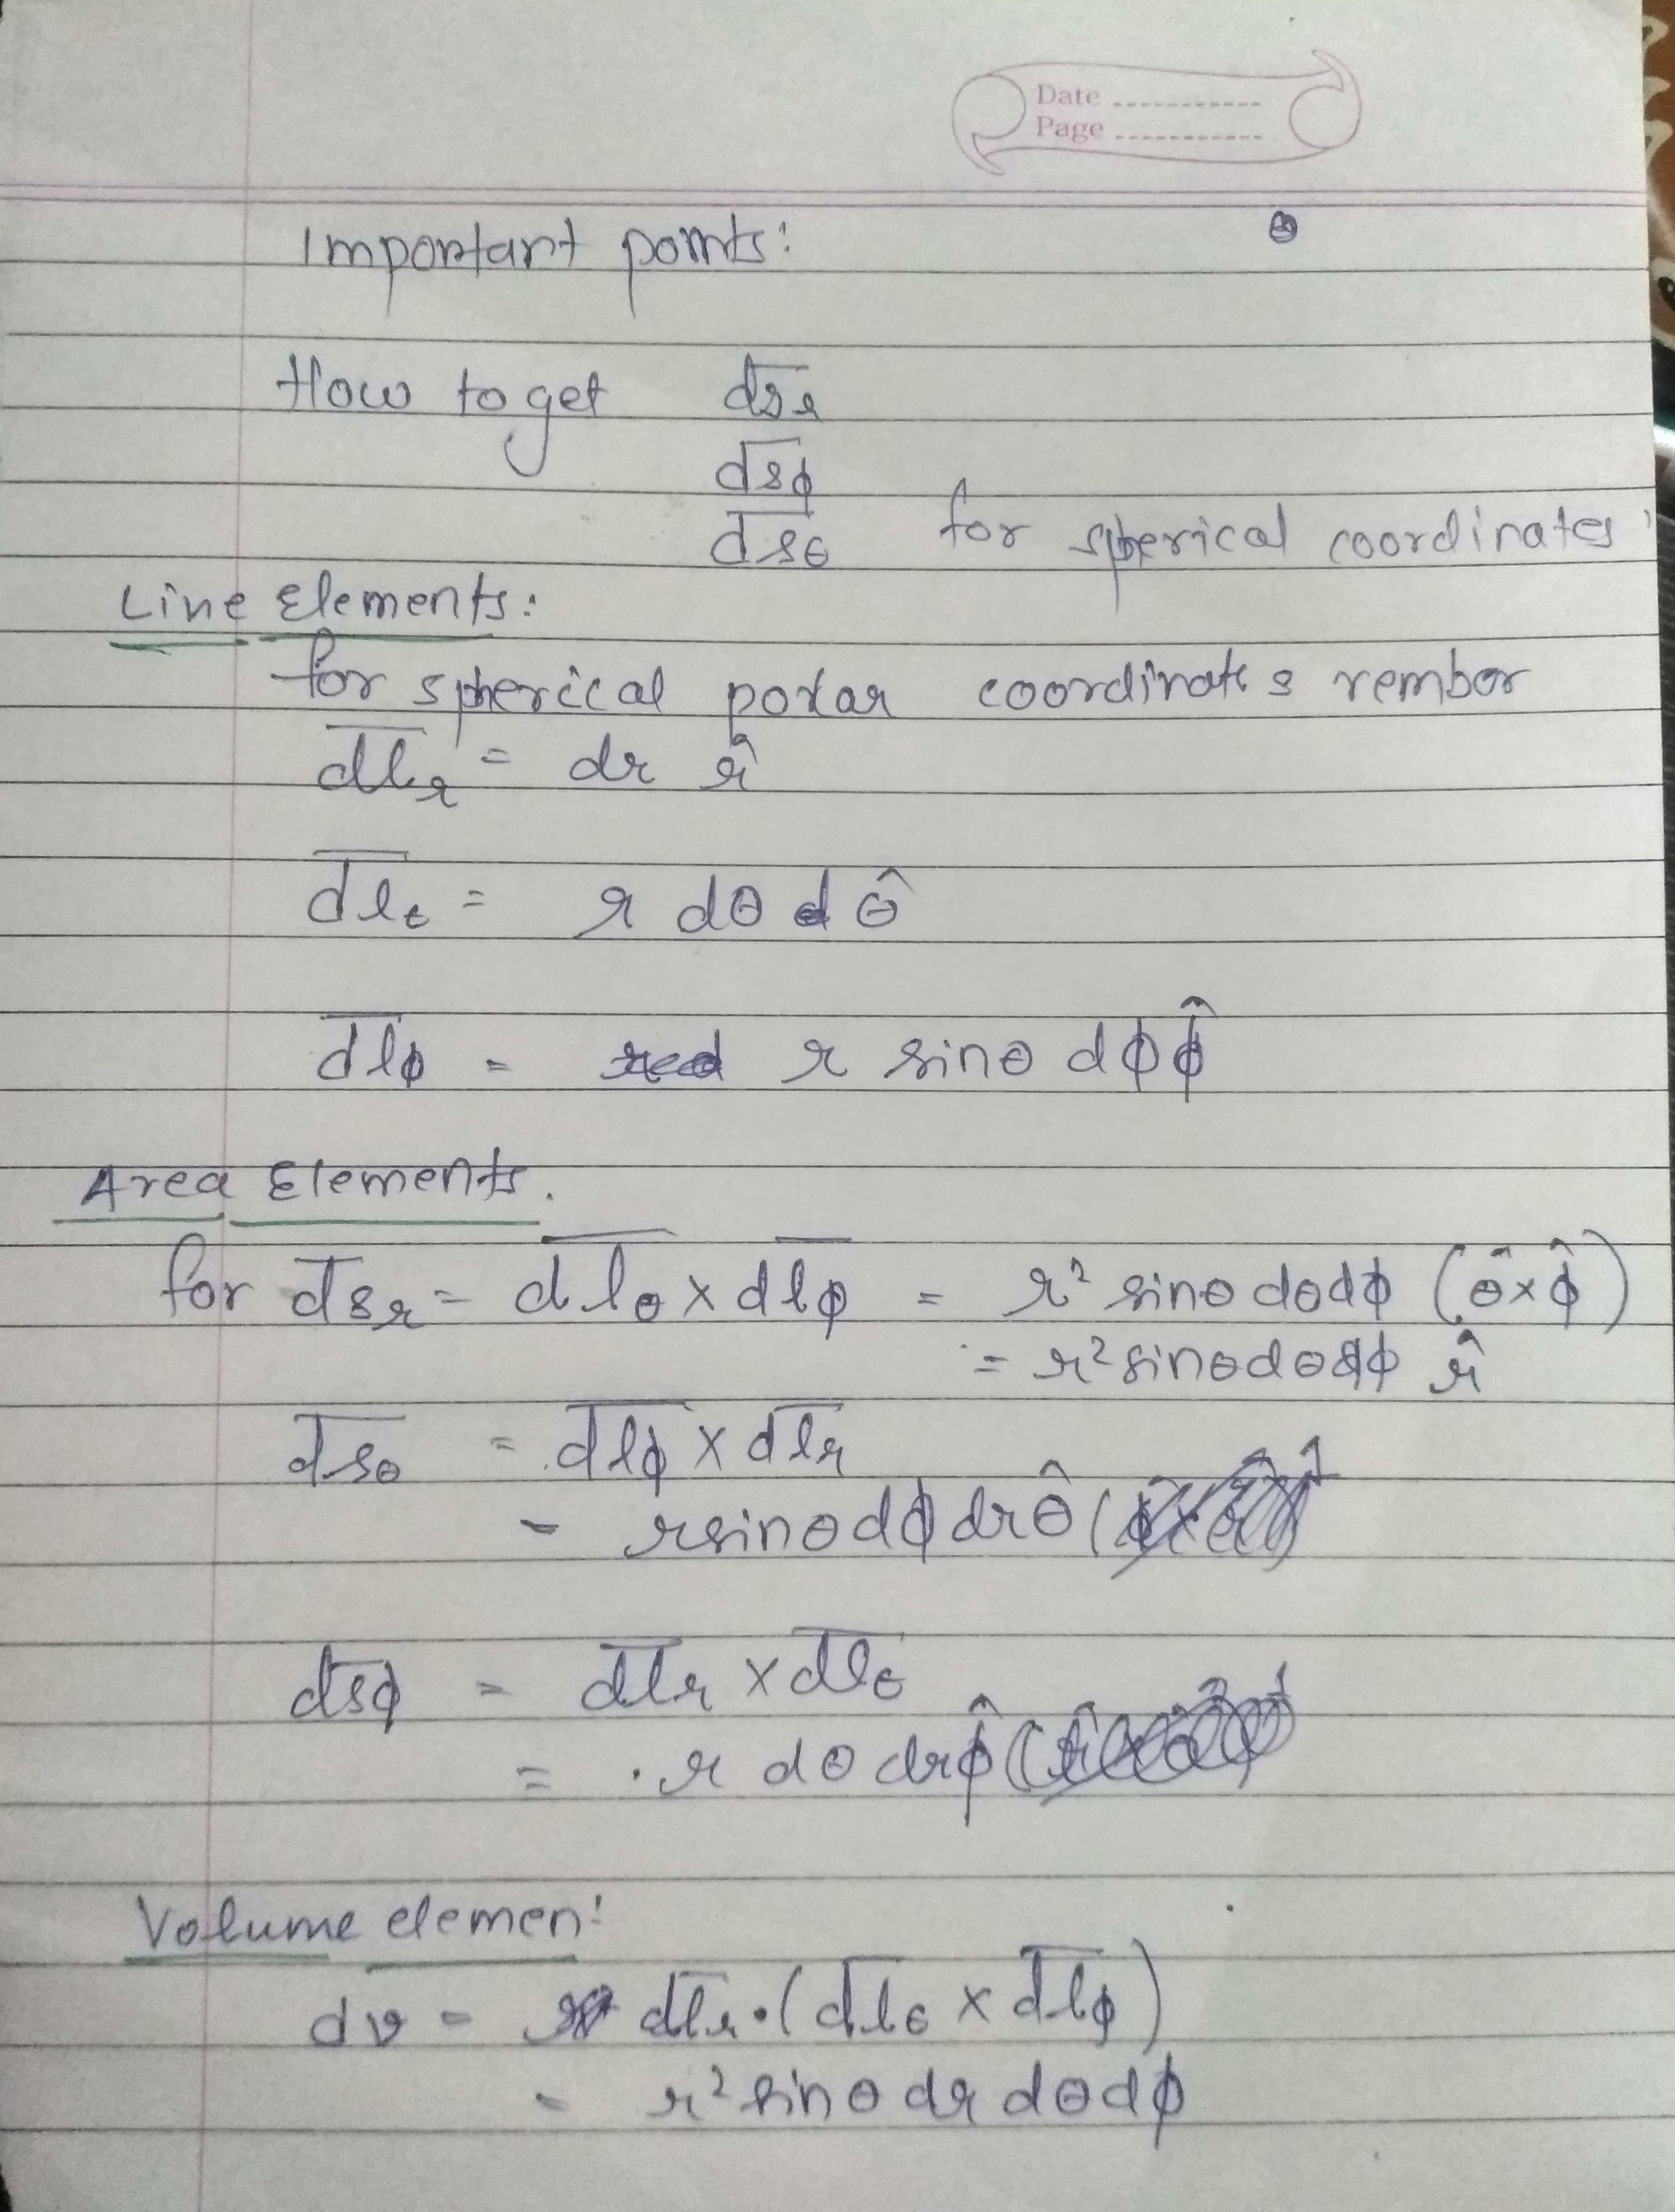 Date ............
Page ............
Important points:
How to get d̅s̅ᵣ
d̅s̅ϕ
d̅s̅θ for spherical coordinates
Line Elements:
for spherical polar coordinates rember
d̅l̅ᵣ = dr r̂
d̅l̅θ = r dθ θ̂
d̅l̅ϕ = r sinθ dϕ ϕ̂
Area Elements.
for d̅s̅ᵣ = d̅l̅θ × d̅l̅ϕ = r² sinθ dθ dϕ (θ̂ × ϕ̂)
= r² sinθ dθ dϕ r̂
d̅s̅θ = d̅l̅ϕ × d̅l̅ᵣ
= r sinθ dϕ dr θ̂
d̅s̅ϕ = d̅l̅ᵣ × d̅l̅θ
= r dθ dr ϕ̂
Volume elemen:
dv = d̅l̅ᵣ · (d̅l̅θ × d̅l̅ϕ)
= r² sinθ dr dθ dϕ